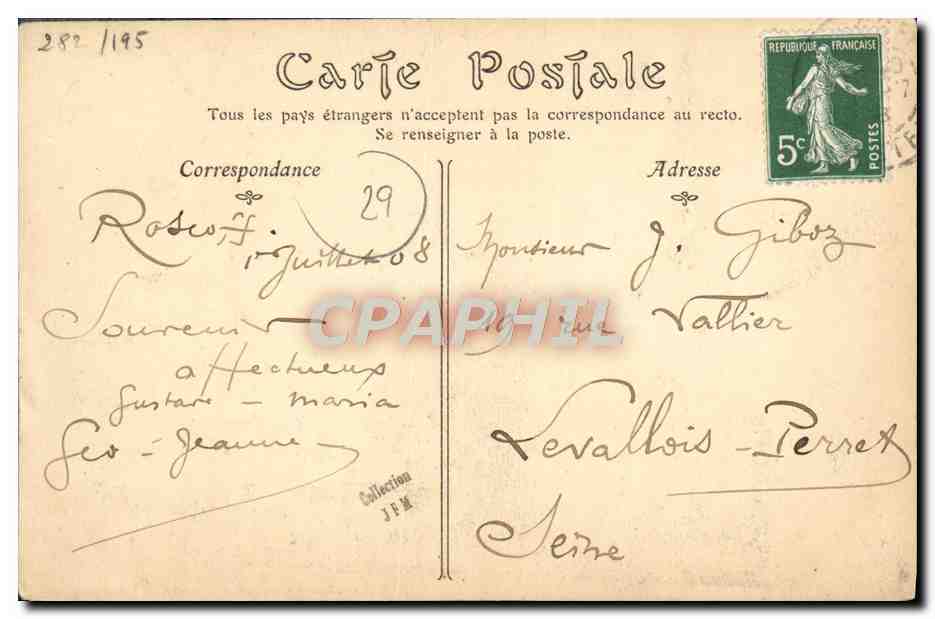 282/195
Carte Postale
Tous les pays étrangers n'acceptent pas la correspondance au recto.
Se renseigner à la poste.
REPUBLIQUE FRANÇAISE
5c
POSTES
Correspondance
29
Roscoff.
1er Juillet 08
Souvenir
affectueux
Gustave - Maria
Geo - Jeanne
Collection
JFM
Adresse
Monsieur J. Giboz
19 rue Vallier
Levallois - Perret
Seine
CPAPHIL